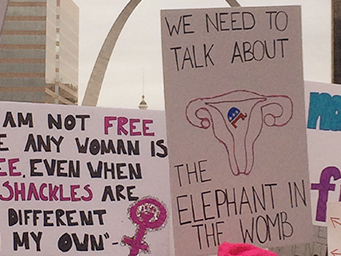 I AM NOT FREE
ANY WOMAN IS
EVEN WHEN
SHACKLES ARE
DIFFERENT
MY OWN"
WE NEED TO
TALK ABOUT
THE
ELEPHANT IN
THE WOMB